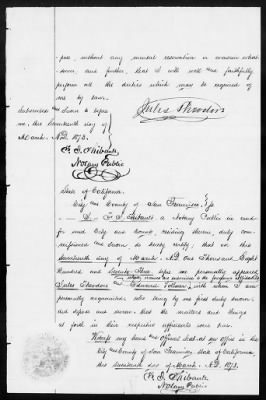 pose without any mental reservation or evasion whatso-
ever, and further, that I will well and faithfully
perform all the duties which may be required of
me by law.
Subscribed and Sworn to before
me, this Seventeenth day of
March A.D. 1873.
F. J. Thibault
Notary Public
State of California,
City and County of San Francisco, } ss
I, F. J. Thibault a Notary Public in and
for said City and County, residing therein, duly com-
missioned and sworn, do hereby certify, that on this
Seventeenth day of March A.D. One Thousand Eight
Hundred and Seventy Three before me personally appeared
whose names are subscribed to the foregoing
Jules Theodore and Edward Vollmer with whom I am
personally acquainted who being by me first duly sworn
depose and swear that the matters and things
set forth in their respective affidavits were true.
Witness my hand and official seal at my office in the
City and County of San Francisco State of California,
this Seventeenth day of March A.D. 1873.
F. J. Thibault
Notary Public